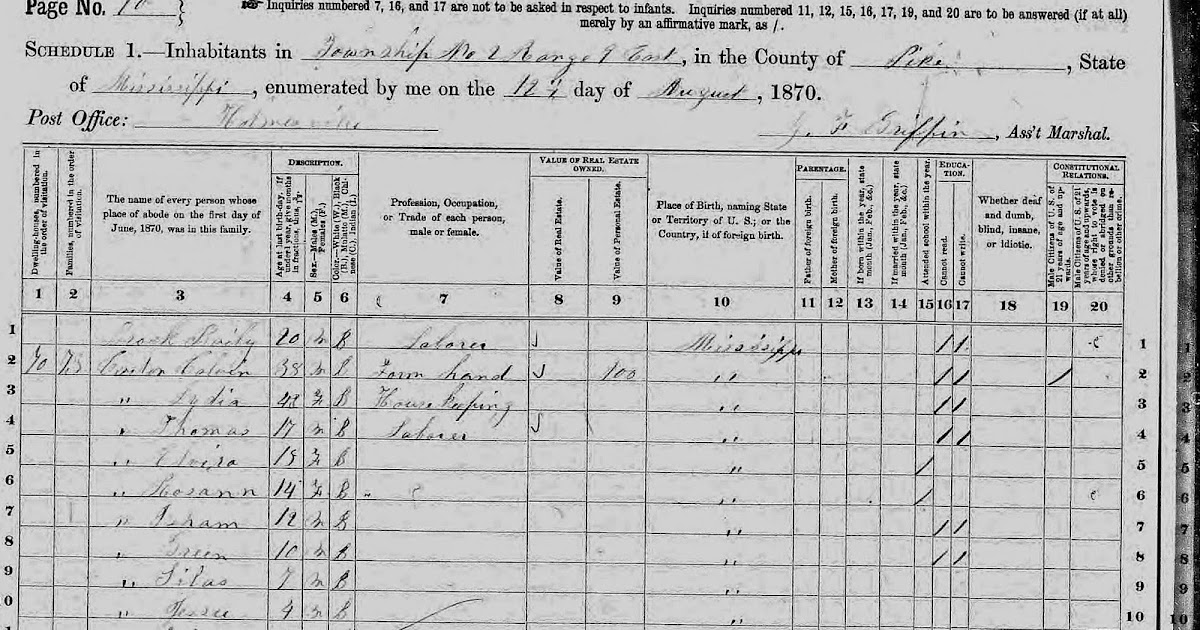 Page No. 10
Inquiries numbered 7, 16, and 17 are not to be asked in respect to infants. Inquiries numbered 11, 12, 15, 16, 17, 19, and 20 are to be answered (if at all)
merely by an affirmative mark, as /.
SCHEDULE 1.—Inhabitants in Township No 2 Range 9 East, in the County of Pike, State
of Mississippi, enumerated by me on the 12th day of August, 1870.
Post Office: Holmesville
J. F. Griffin, Ass't Marshal.
DESCRIPTION. VALUE OF REAL ESTATE OWNED. PARENTAGE. EDUCATION. CONSTITUTIONAL RELATIONS.
Dwelling-houses, numbered in the order of visitation.
Families, numbered in the order of visitation.
The name of every person whose place of abode on the first day of June, 1870, was in this family.
Age at last birth-day. If under 1 year, give months in fractions, thus, 3/12
Sex.—Males (M.), Females (F.)
Color.—White (W.), Black (B.), Mulatto (M.), Chinese (C.), Indian (I.)
Profession, Occupation, or Trade of each person, male or female.
Value of Real Estate.
Value of Personal Estate.
Place of Birth, naming State or Territory of U. S.; or the Country, if of foreign birth.
Father of foreign birth.
Mother of foreign birth.
If born within the year, state month (Jan., Feb., &c.)
If married within the year, state month (Jan., Feb., &c.)
Attended school within the year.
Cannot read.
Cannot write.
Whether deaf and dumb, blind, insane, or idiotic.
Male Citizens of U. S. of 21 years of age and upwards.
Male Citizens of U. S. of 21 years of age and upwards, whose right to vote is denied or abridged on other grounds than rebellion or other crime.
1 2 3 4 5 6 7 8 9 10 11 12 13 14 15 16 17 18 19 20
1 20 m B Laborer Mississippi / / 1
2 70 73 Calvin 38 m B Farm hand 100 " / / / 2
3 " Lydia 48 F B House Keeping " / / 3
4 " Thomas 17 m B Laborer " / / 4
5 " Elvira 15 F B " / 5
6 " Rosann 14 F B " / 6
7 " Isham 12 m B " / / 7
8 " Green 10 m B " / / 8
9 " Silas 7 m B " 9
0 " 4 m B " 10